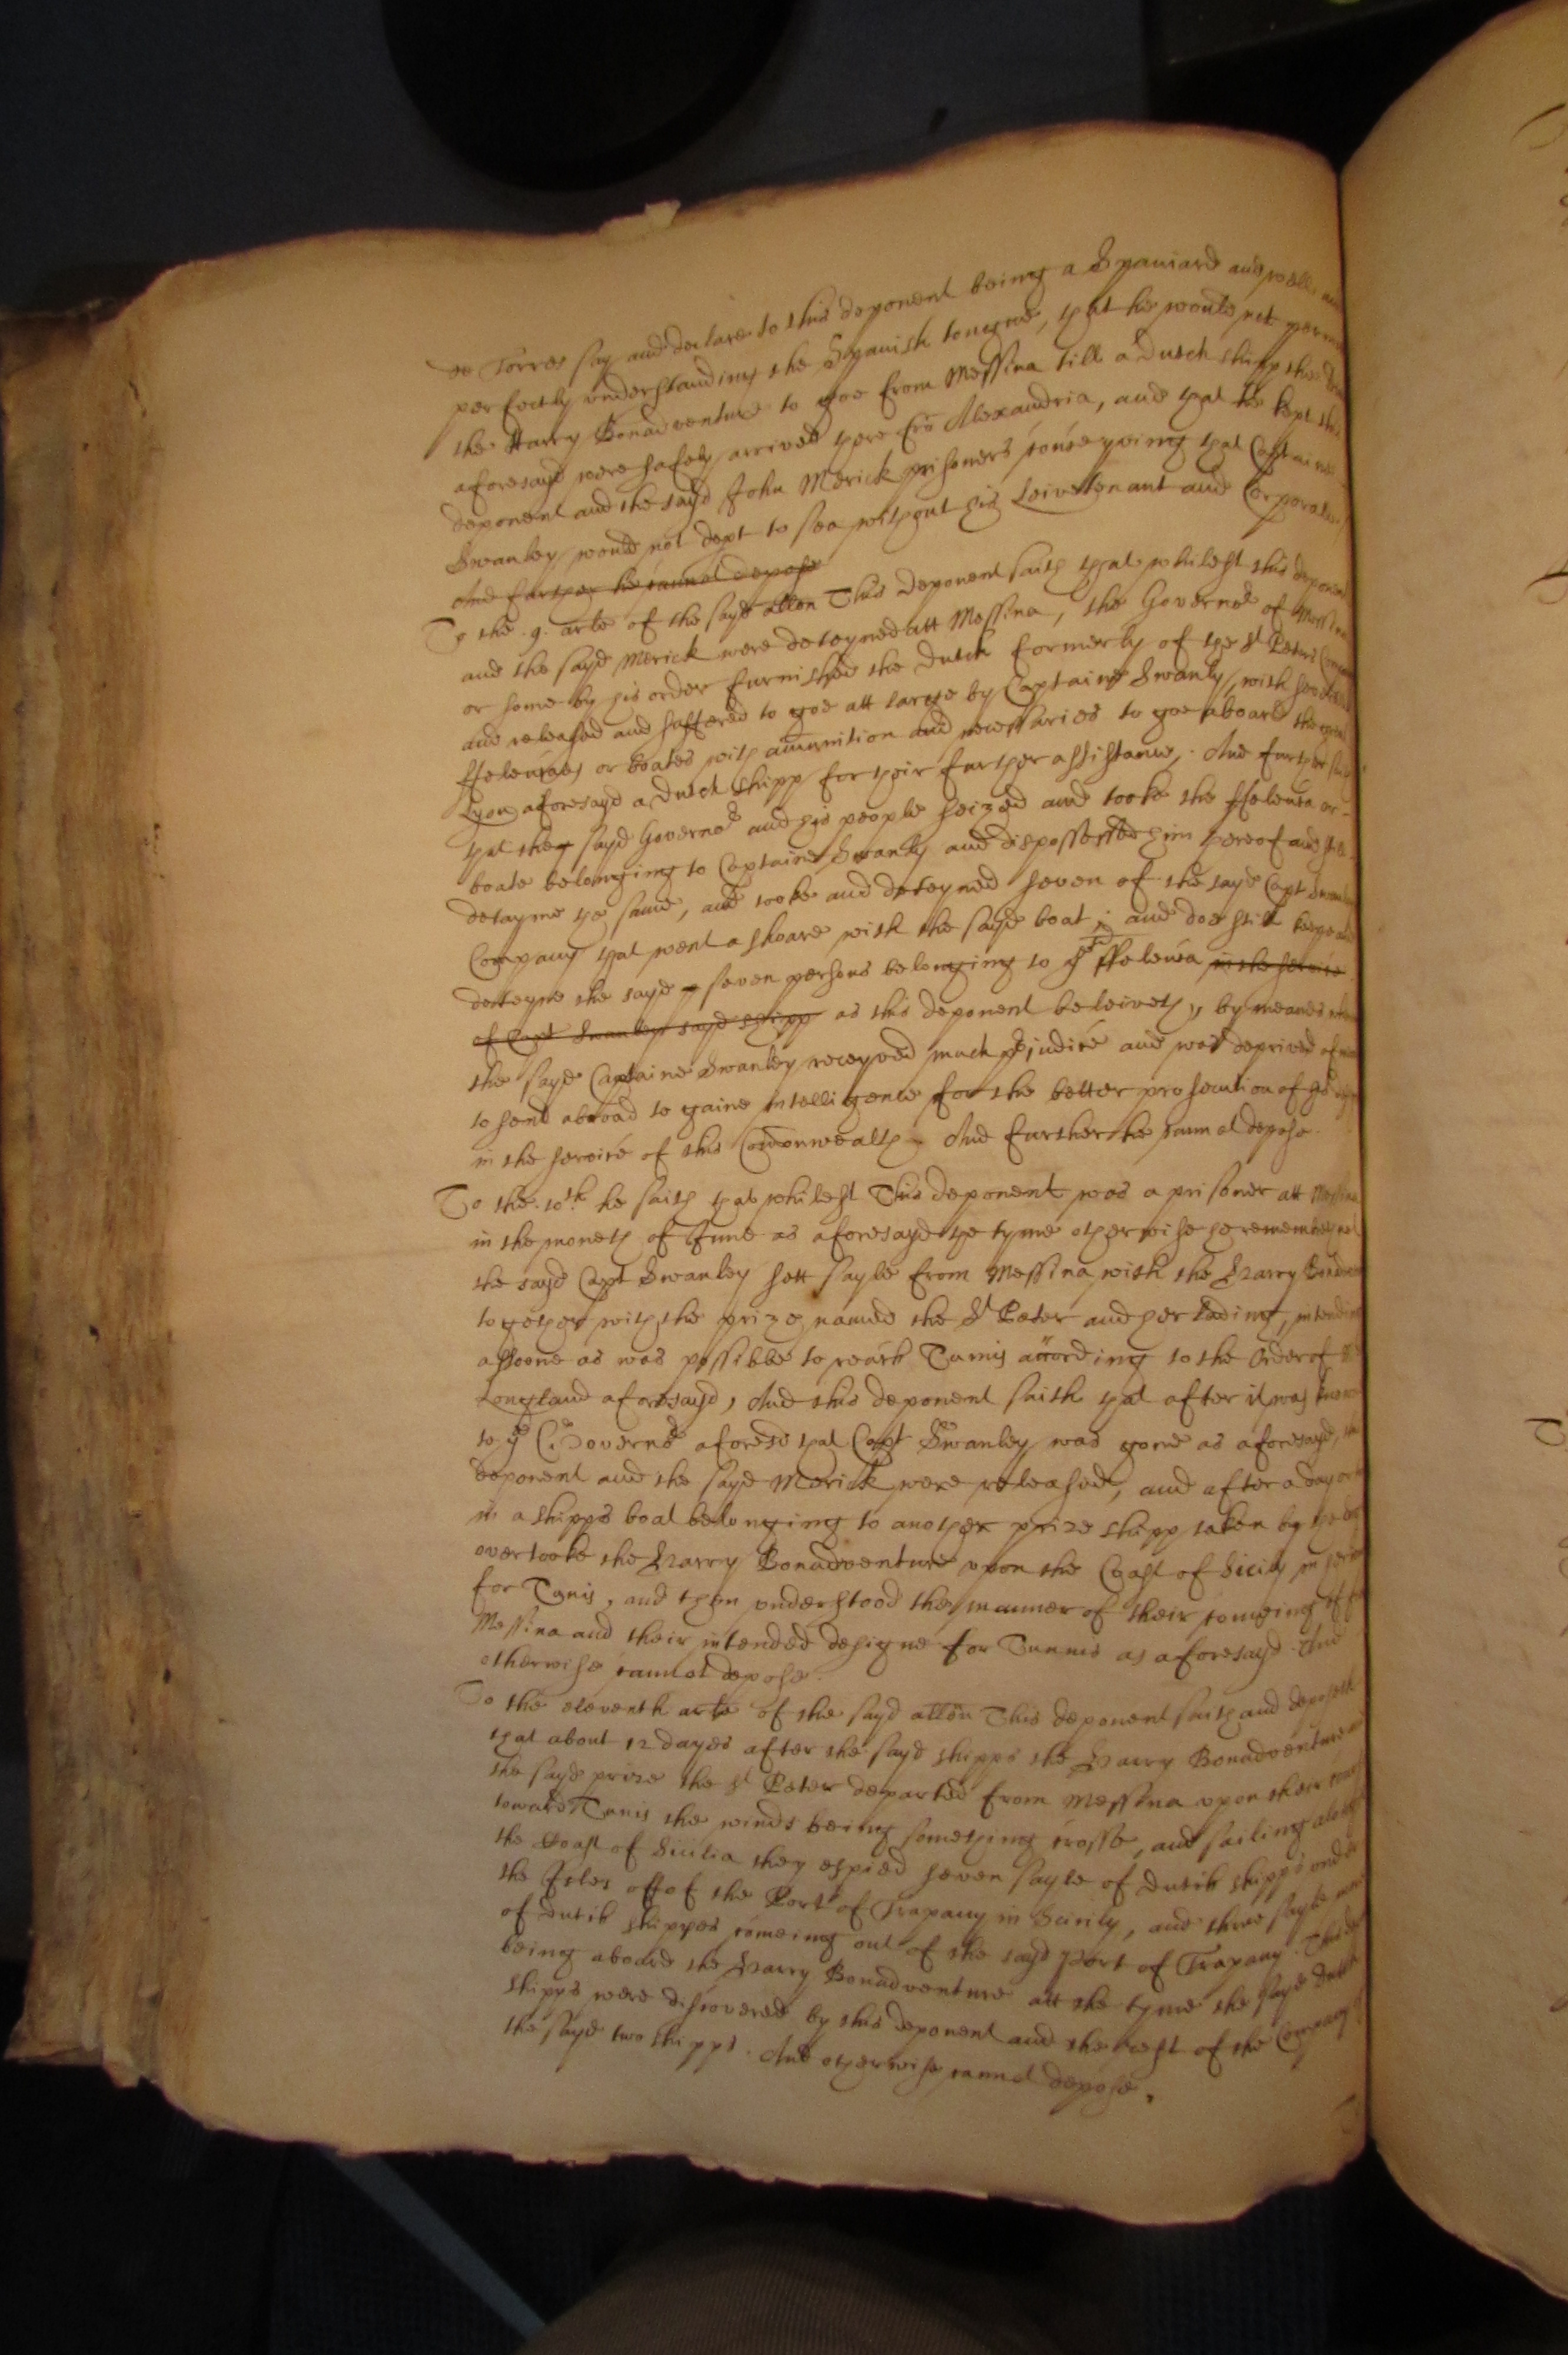 de Torres say and declare to this deponent being a Spaniard and well and
perfectly understanding the Spanish tongue, that he would not
the Harry Bonadventure to goe from Messina till a Dutch shipp the
aforesayd were safely arrived there frō Alexandria, and that he kept this
deponent and the sayd John Merick prisoners conceyving that Captaine
Swanley would not dept to sea without his Leivetenant and Corporall,
And further he cannot depose
To the .9. arle of the sayd allon This deponent saith that whilest this deponent
and the sayd Merick were deteyned att Messina, the Governor of Messina
or some by his order furnished the Dutch formerly of the St Peters
and released and suffered to goe att large by Captaine Swanly, with
ffeluccaes or boates with amunition and necessaries to goe aboard the
Lyon aforesayd a Dutch shipp for their further assistance, And further
that they sayd Governor and his people seized and tooke the ffeluca or
boate belonging to Captaine Swanly and dispossessed him thereof and
detayne the same, and tooke and deteyned seven of the sayd Capt
Company that went ashoare with the sayd boat; and doe still keepe and
deteyne the sayd seven persons belonging to ye ffeluca in the service
of Capt Swanley sayd shipp as this deponent beleiveth, by meanes
the sayd Captaine Swanley receyved much prejudice and was deprived of
to send abroad to gaine intelligence for the better prosecution of his
in the service of this Comonwealth. And further he cannot depose.
To the .10th. he saith that whilest This deponent was a prisoner att Messina
in the moneth of June as aforesayd the tyme otherwise he remembers not
the sayd Capt Swanley sett sayle from Messina with the Harry
together with the prize named the St Peter and her lading, intending
assoone as was possible to reach Tunis according to the Order of
Longland aforesayd, And this deponent saith that after it was
to ye Governor aforesd that Capt Swanley was gone as aforesayd,
deponent and the sayd Merick were released, and after a day or
in a shipps boat belonging to another prize shipp taken by the
overtooke the Harry Bonadventure upon the Coast of Sicily in
for Tunis, and then understood the manner of their comeing off
Messina and their intended designe for Tunnis as aforesayd. And
otherwise cannot depose.
To the eleventh arle of the sayd allon This deponent saith and deposeth
that about 12 dayes after the sayd shipps the Harry Bonadventure
the sayd prize the St Peter departed from Messina upon their
towards Tunis the winds being something crosse, and sailing
the Coast of Sicilia they espied seven sayle of dutch shipps under
the Isles off of the Port of Trapany in Sicily, and three sayle
of dutch shippes comeing out of the sayd Port of Trapany. This
being aboard the Harry Bonadventure att the tyme the sayd dutch
shipps were discovered by this deponent and the rest of the Company
the sayd two shipps. And otherwise cannot depose.